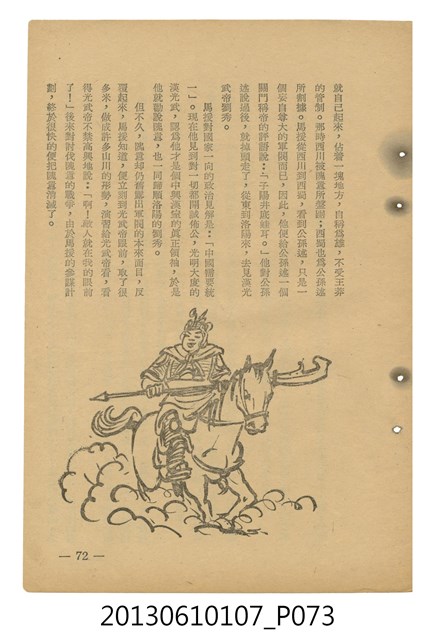 就自己起來，佔着一塊地方，自稱為雄，不受王莽
的管制。那時西川被隗囂所盤踞；西蜀也為公孫述
所割據。馬援從西川到西蜀，看到公孫述，只是一
個妄自尊大的軍閥而已，因此，他便給公孫述一個
關門稱帝的評語說：「子陽井底蛙耳。」他對公孫
述說過後，就掉頭走了，從東到洛陽來，去見漢光
武帝劉秀。
馬援對國家一向的政治見解是：「中國需要統
一」。現在他見到對一切都開誠佈公，光明大度的
漢光武，認為他才是個中興漢室的真正領袖，於是
他就勸說隗囂，也一同歸順洛陽的劉秀。
但不久，隗囂却仍舊露出軍閥的本來面目，反
覆起來，馬援知道，便立刻到光武帝跟前，取了很
多米，做成許多山川的形勢，演習給光武帝看，看
得光武帝不禁高興地說：「啊！敵人就在我的眼前
了！」後來對討伐隗囂的戰爭，由於馬援的參謀計
劃，終於很快的便把隗囂消滅了。
— 72 —
20130610107_P073